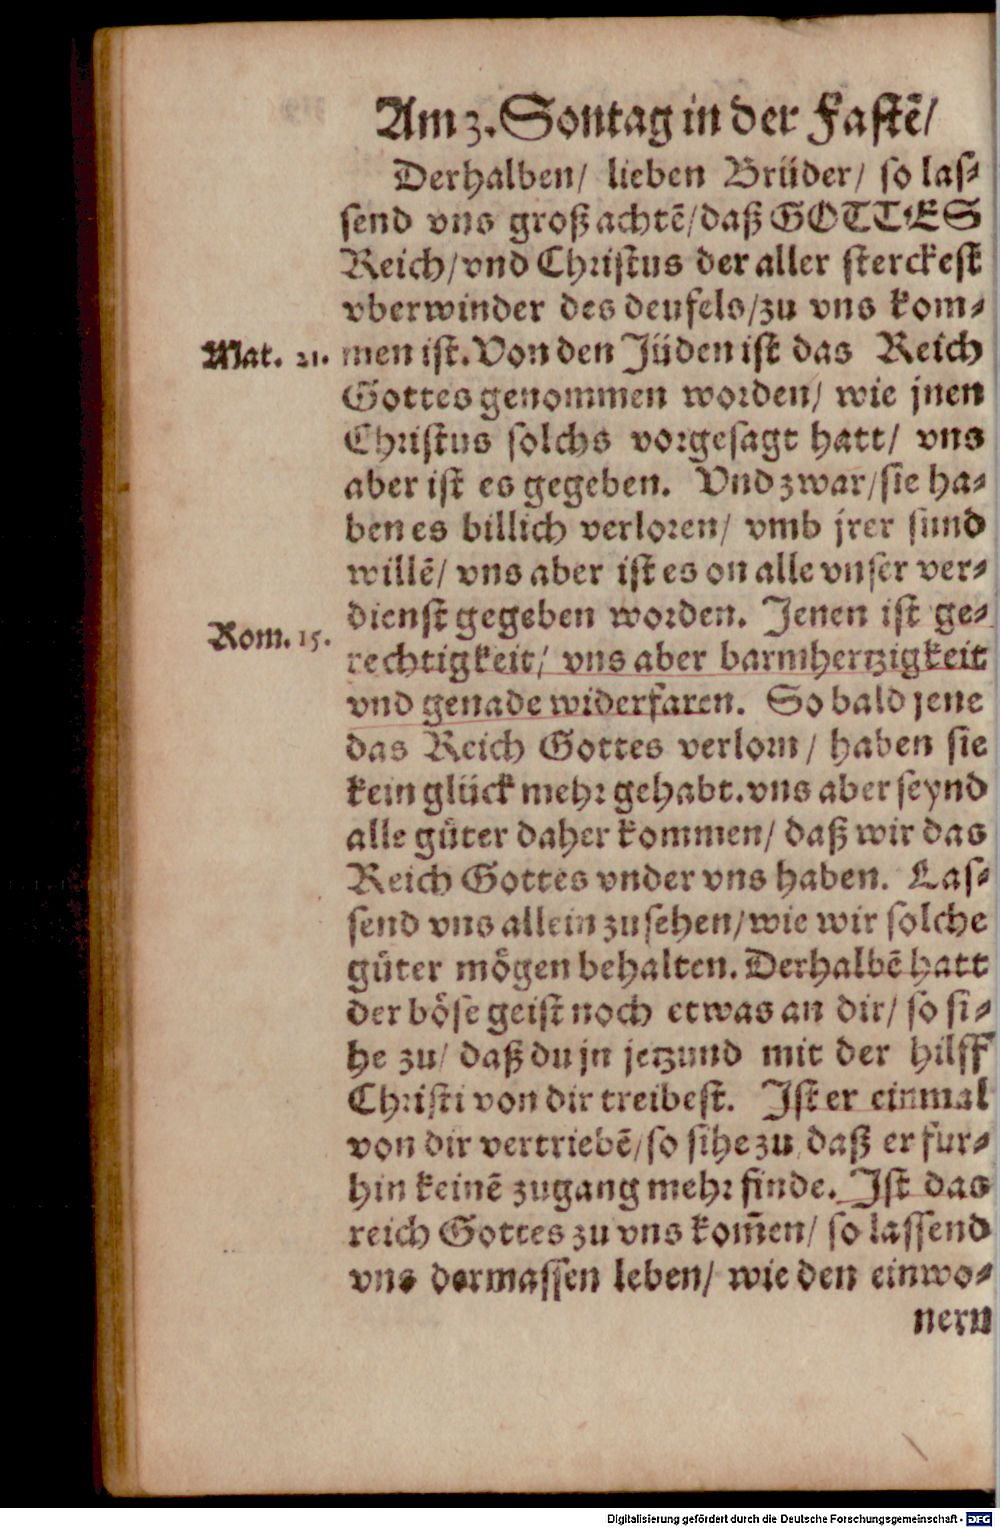 Am 3. Sontag in der Fastẽ/
Derhalben/ lieben Brüder/ so las⸗
send vns groß achtẽ/daß GOTTES
Reich/vnd Christus der aller sterckest
vberwinder des deufels/zu vns kom⸗
Mat. 21. men ist. Von den Jüden ist das Reich
Gottes genommen worden/ wie jnen
Christus solchs vorgesagt hatt/ vns
aber ist es gegeben. Vnd zwar/sie ha⸗
ben es billich verloren/ vmb jrer sund
willẽ/ vns aber ist es on alle vnser ver⸗
dienst gegeben worden. Jenen ist ge⸗
Rom. 15. rechtigkeit/ vns aber barmhertzigkeit
vnd genade widerfaren. So bald jene
das Reich Gottes verlorn/ haben sie
kein glück mehr gehabt. vns aber seynd
alle güter daher kommen/ daß wir das
Reich Gottes vnder vns haben. Las⸗
send vns allein zusehen/wie wir solche
güter mögen behalten. Derhalbẽ hatt
der böse geist noch etwas an dir/ so si⸗
he zu/ daß du jn jetzund mit der hilff
Christi von dir treibest. Ist er einmal
von dir vertriebẽ/so sihe zu daß er fur⸗
hin keinẽ zugang mehr finde. Ist das
reich Gottes zu vns kom̃en/ so lassend
vns dermassen leben/ wie den einwo⸗
nern
Digitalisierung gefördert durch die Deutsche Forschungsgemeinschaft - DFG